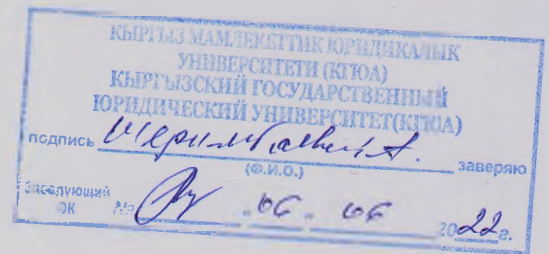 КЫРГЫЗ МАМЛЕКЕТТИК ЮРИДИКАЛЫК
УНИВЕРСИТЕТИ (КГЮА)
КЫРГЫЗСКИЙ ГОСУДАРСТВЕННЫЙ
ЮРИДИЧЕСКИЙ УНИВЕРСИТЕТ(КГЮА)
подпись заверяю
(Ф.И.О.)
Заведующий
ОК № „06" 06 2022г.